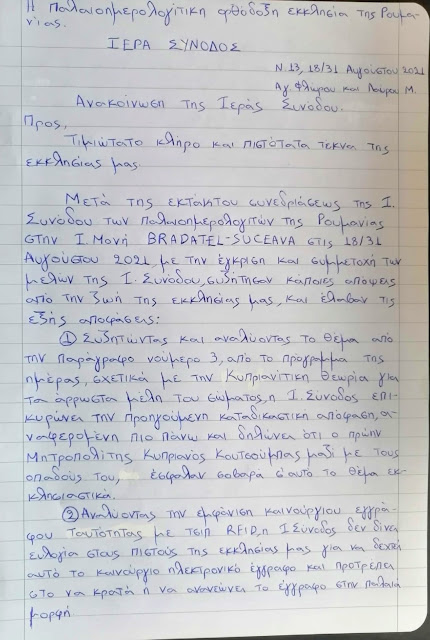 Η Παλαιοημερολογίτικη ορθόδοξη εκκλησία της Ρουμα-
νίας.
ΙΕΡΑ ΣΥΝΟΔΟΣ
Ν. 13, 18/31 Αυγούστου 2021
Αγ. Φλώρου και Λαύρου Μ.
Ανακοίνωση της Ιεράς Συνόδου.
Προς,
Τιμιώτατο κλήρο και πιστότατα τεκνα της
εκκλησίας μας.
Μετά της εκτάκτου συνεδριάσεως της Ι.
Συνόδου των παλαιοημερολογιτών της Ρουμανίας
στην Ι. Μονή BRADATEL-SUCEAVA στις 18/31
Αυγούστου 2021, με την έγκριση και συμμετοχή των
μελών της Ι. Συνόδου, συζήτησαν κάποιες απόψεις
από την ζωή της εκκλησίας μας, και έλαβαν τις
εξής αποφάσεις:
① Συζητώντας και αναλύοντας το θέμα από
την παράγραφο νούμερο 3, από το πρόγραμμα της
ημέρας, σχετικά με την Κυπριανίτικη θεωρία για
τα άρρωστα μέλη του σώματος, η Ι. Σύνοδος επι-
κυρώνει την προηγούμενη καταδικαστική απόφαση, α-
ναφερομένη πιο πάνω και δηλώνει ότι ο πρώην
Μητροπολίτης Κυπριανός Κουτσούμπας μαζί με τους
οπαδούς του, έσφαλαν σοβαρά σ'αυτό το θέμα εκ-
κλησιαστικά.
② Αναλύοντας την εμφάνιση καινούργιου εγγρά-
φου ταυτότητας με τσιπ RFID, η Ι Σύνοδος δεν δίνει
ευλογία στους πιστούς της εκκλησίας μας για να δεχτεί
αυτό το καινούργιο ηλεκτρονικό έγγραφο και προτρέπει
στο να κρατά η να ανανεώνει το έγγραφο στην παλαιά
μορφή